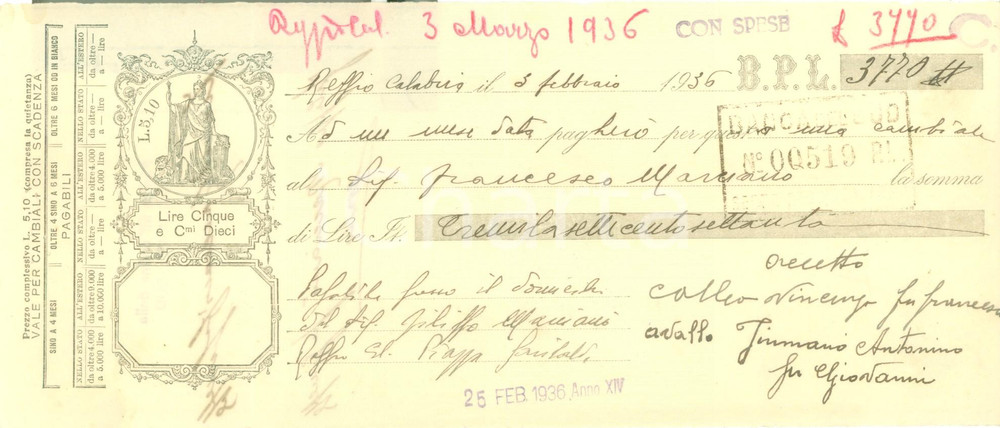 Prezzo complessivo L. 5,10 (compresa la quietanza)
VALE PER CAMBIALI CON SCADENZA
PAGABILI
SINO A 4 MESI
OLTRE 4 SINO A 6 MESI
OLTRE 6 MESI OD IN BIANCO
NELLO STATO ALL'ESTERO NELLO STATO ALL'ESTERO NELLO STATO ALL'ESTERO
da oltre 4.000 a 5.000 lire
da oltre 9.000 a 10.000 lire
da oltre — a — lire
da oltre 4.000 a 5.000 lire
da oltre — a — lire
da oltre — a — lire
L. 5,10
Lire Cinque
e Cmi Dieci
3 Marzo 1936
CON SPESE
£ 3770
Reggio Calabria il 3 febbraio 1936 B.P.L. 3770
Ad un mese data pagherò per questa mia cambiale
N° 00519
al Sig. Francesco Marciano la somma
di Lire It. Tremilasettecentosettanta
Pagabile presso il domicilio
del Sig. Filippo Marciano
Reggio Cal. Piazza Garibaldi
accetto
Vincenzo fu Francesco
avallo Antonino
fu Giovanni
25 FEB. 1936 Anno XIV